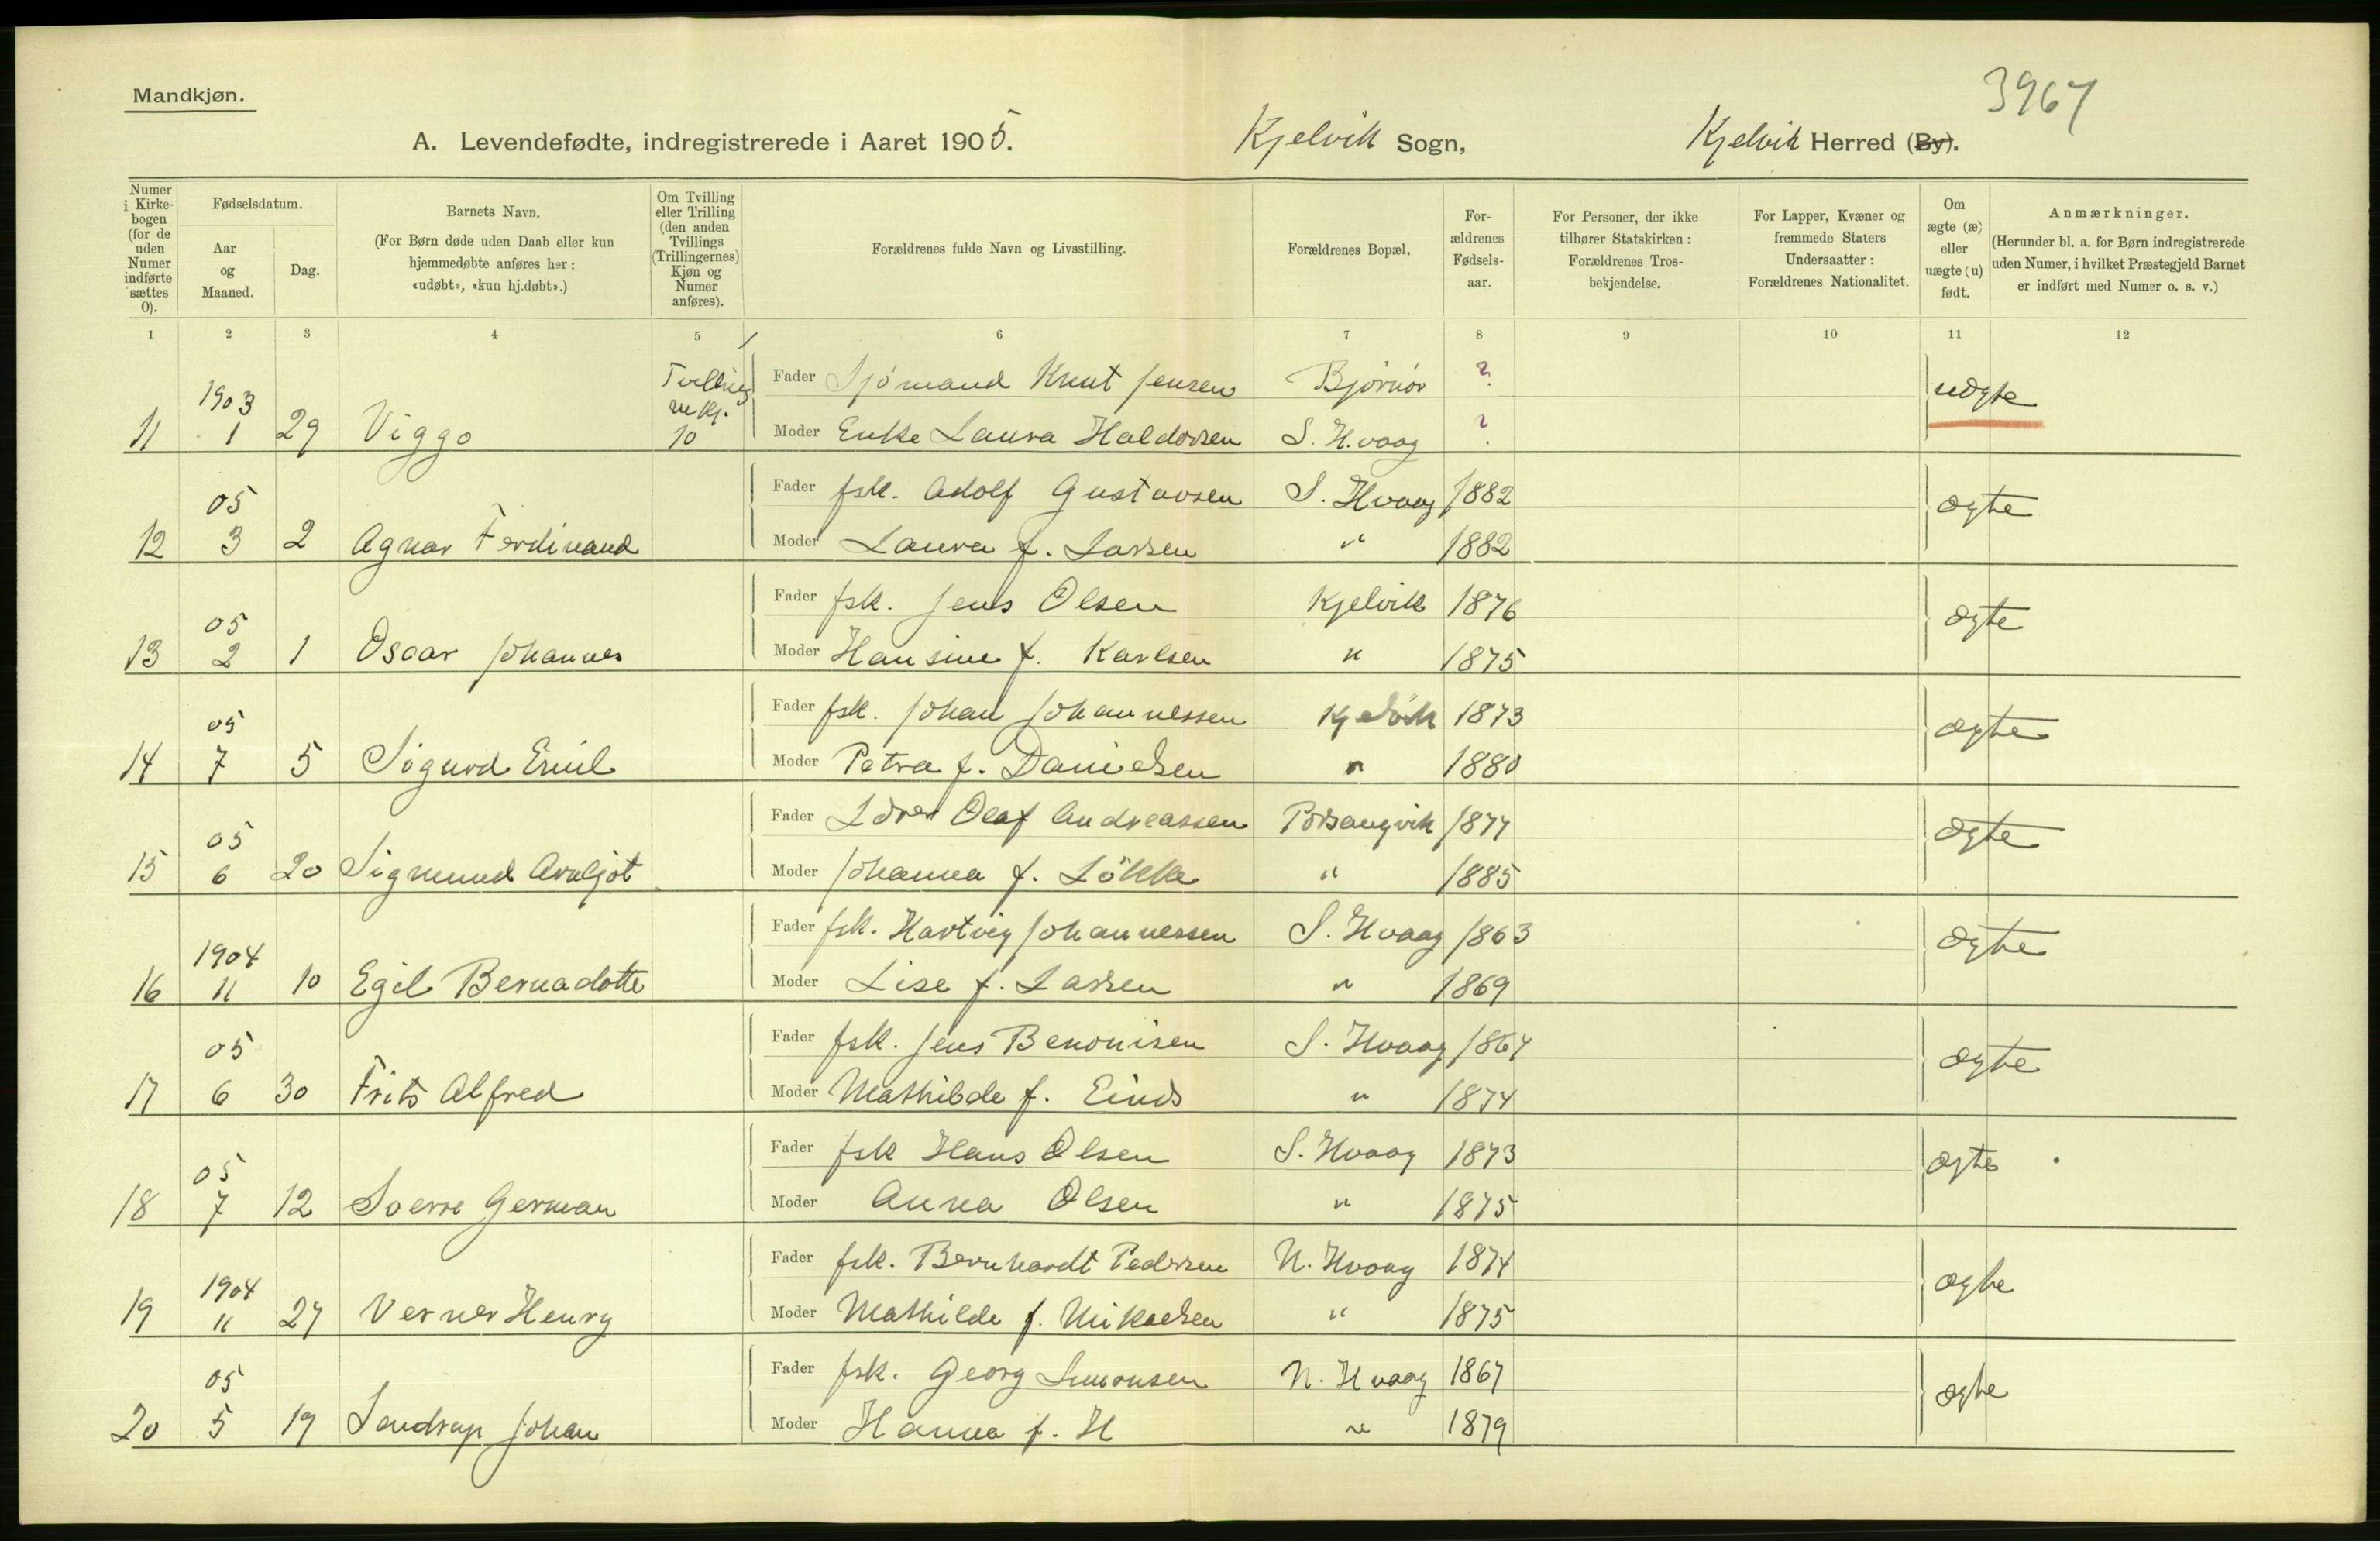 3967
Mandkjøn.
A. Levendefødte, indregistrerede i Aaret 1905. Kjelvik Sogn, Kjelvik Herred (By).
Numer i Kirkebogen (for de uden Numer indførte sættes 0).
Fødselsdatum.
Aar og Maaned.
Dag.
Barnets Navn.
(For Børn døde uden Daab eller kun hjemmedøbte anføres her: «udøbt», «kun hj.døbt».)
Om Tvilling eller Trilling (den anden Tvillings (Trillingernes) Kjøn og Numer anføres).
Forældrenes fulde Navn og Livsstilling.
Forældrenes Bopæl,
Forældrenes Fødselsaar.
For Personer, der ikke tilhører Statskirken: Forældrenes Trosbekjendelse.
For Lapper, Kvæner og fremmede Staters Undersaatter: Forældrenes Nationalitet.
Om ægte (æ) eller uægte (u) født.
Anmærkninger.
(Herunder bl. a. for Børn indregistrerede uden Numer, i hvilket Præstegjeld Barnet er indført med Numer o. s. v.)
1 2 3 4 5 6 7 8 9 10 11 12
1903 Tvilling Fader Sjømand Knut Jensen Bjørnør ? uægte
11 1 29 Viggo 10 Moder Enke Laura Haldorsen S. H.vaag ?
05 Fader fsk. Adolf Gustavsen S. Hvaag 1882 ægte
12 3 2 Agnar Ferdinand Moder Laura f. Larsen " 1882
05 Fader fsk. Jens Olsen Kjelvik 1876 ægte
13 2 1 Oscar Johannes Moder Hansine f. Karlsen " 1875
05 Fader fsk. Johan Johannessen Kjelvik 1873 ægte
14 7 5 Sigurd Emil Moder Petra f. Danielsen " 1880
05 Fader Lærer Olaf Andreassen Porsangvik 1877 ægte
15 6 20 Sigmund Arnljot Moder Johanna f. Løkke " 1885
1904 Fader fsk. Hartvig Johannessen S. Hvaag 1863 ægte
16 11 10 Egil Bernadotte Moder Lise f. Larsen " 1869
05 Fader fsk. Jens Benonisen S. Hvaag 1867 ægte
17 6 30 Frits Alfred Moder Mathilde f. Einds " 1874
05 Fader fsk Hans Olsen S. Hvaag 1873 ægte
18 7 12 Sverre German Moder Anna Olsen " 1875
1904 Fader fsk. Bernhardt Pedersen N. Hvaag 1874 ægte
19 11 27 Verner Henry Moder Mathilde f. Mikaelsen " 1875
05 Fader fsk. Georg Simonsen N. Hvaag 1867 ægte
20 5 19 Sendrup Johan Moder Hanna f. H " 1879